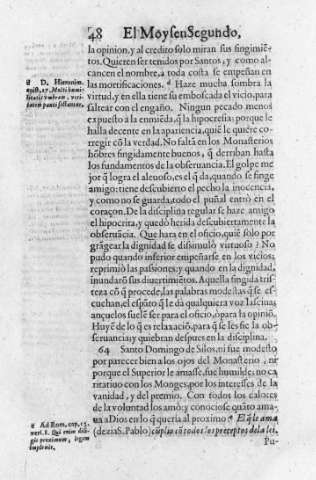 48 El Moysen Segundo,
la opinion, y al credito solo miran sus fingimiẽ-
tos. Quieren ser tenidos por Santos, y como al-
cancen el nombre, a toda costa se empeñan en
las mortificaciones. Haze mucha sombra la
virtud, y en ella tiene su emboscada el vicio, para
saltear con el engaño. Ningun pecado menos
expuesto à la enmiẽda, q̃ la hipocresia: porque le
halla decente en la apariencia, quiẽ le quiere co-
rregir cõ la verdad. No faltã en los Monasterios
hõbres fingidamente buenos, q̃ derriban hasta
los fundamentos de la obseruancia. El golpe me
jor q̃ logra el aleuoso, es el q̃ da, quando se finge
amigo: tiene descubierto el pecho la inocencia,
y como no se guarda, todo el puñal entrò en el
coraçon. De la disciplina regular se haze amigo
el hipocrita, y quedò herida descubiertamente la
obseruãcia. Que hara en el oficio, quiẽ solo por
grãgear la dignidad se dissimulò virtuoso? No
pudo quando inferior empeñarse en los vicios;
reprimiò las passiones; y quando en la dignidad,
inundarõ sus diuertimẽtos. Aquella fingida tris-
teza cõ q̃ procede, las palabras modestas q̃ se es-
cuchan, el espiritu q̃ le dà qualquiera voz lastima,
ançuelos suelẽ ser para el oficio, ò para la opiniõ.
Huyẽ de lo q̃ es relaxaciõ, para q̃ se les fie la ob-
seruancia; y quiebran despues en la disciplina.
64 Santo Domingo de Silos, ni fue modesto
por parecer bien a los ojos del Monasterio, ni
porque el Superior le amasse, fue humilde; no ca-
ritatiuo con los Monges, por los interesses de la
vanidad, y del premio. Con todos los calores
de la voluntad los amò; y conociose quãto ama-
ua a Dios en lo q̃ queria al proximo. El q̃ le ama
(dezia S. Pablo) cũple cõ todos los preceptos de la lei.
Pu-
D. Hieronim.
epist. 27. Multi humi-
litatis umbram, veri-
tatem pauci sectantur.
Ad Rom. cap. 13.
vers. 8. Qui enim dili-
git proximum, legem
impleuit.